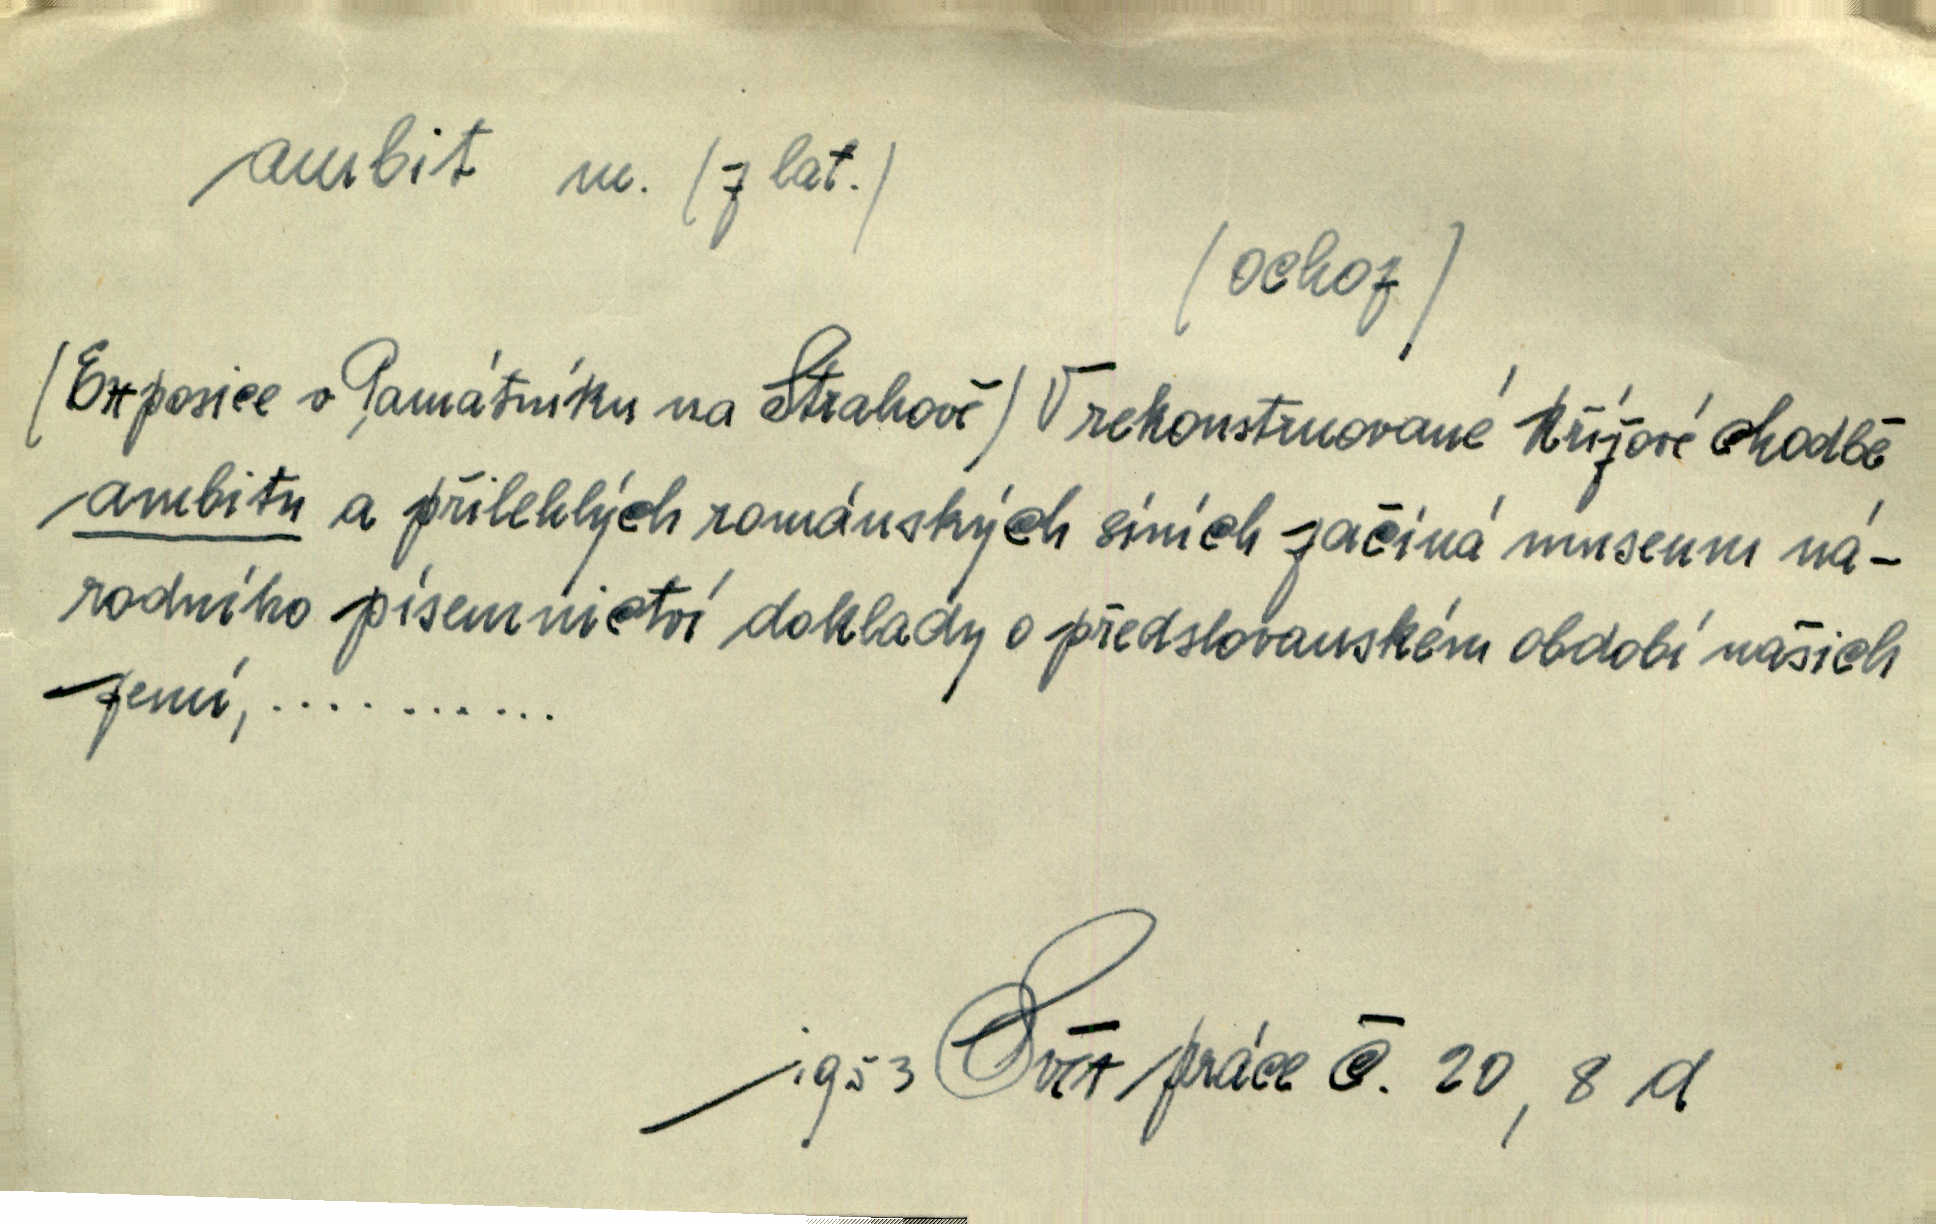 ambit m. (z lat.)
(ochoz)
(Exposice v Památníku na Strahově) V rekonstruované křížové chodbě
ambitu a přilehlých románských síních začíná museum ná-
rodního písemnictví doklady o předslovanském období našich
zemí, ...........
1953 Svět práce č. 20, 8 d